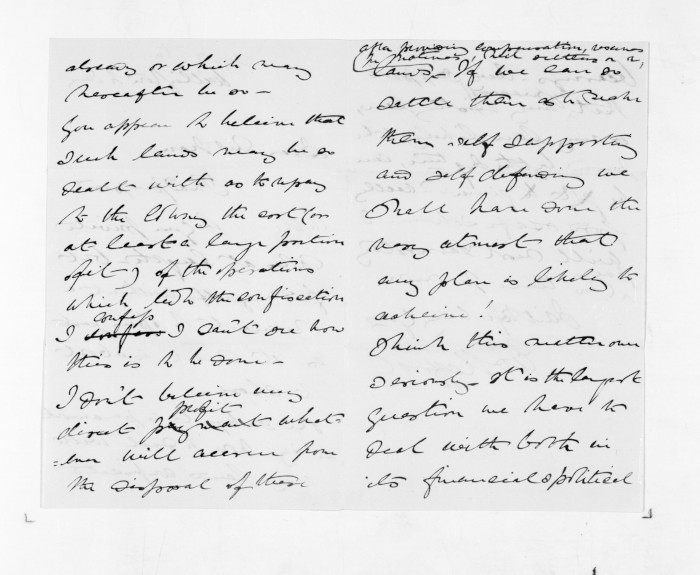 already or which may
hereafter be so –
You appear to believe that
such lands may be so
dealt with as to repay
to the Colony the cost (or
at least a large portion
of it) of the operations
which led to the confiscation
confess
I confess I can't see how
this is to be done –
I don't believe any
profit
direct payment what=
=ever will accrue from
the disposal of these
after providing compensation, reserves
for natives, military settlers &c &c,
lands. If we can so
settle them as to make
them self supporting
and self defending we
shall have done the
very utmost that
any plan is likely to
achieve!
Think this matter over
seriously – It is the largest
question we have to
deal with both in
its financial & political